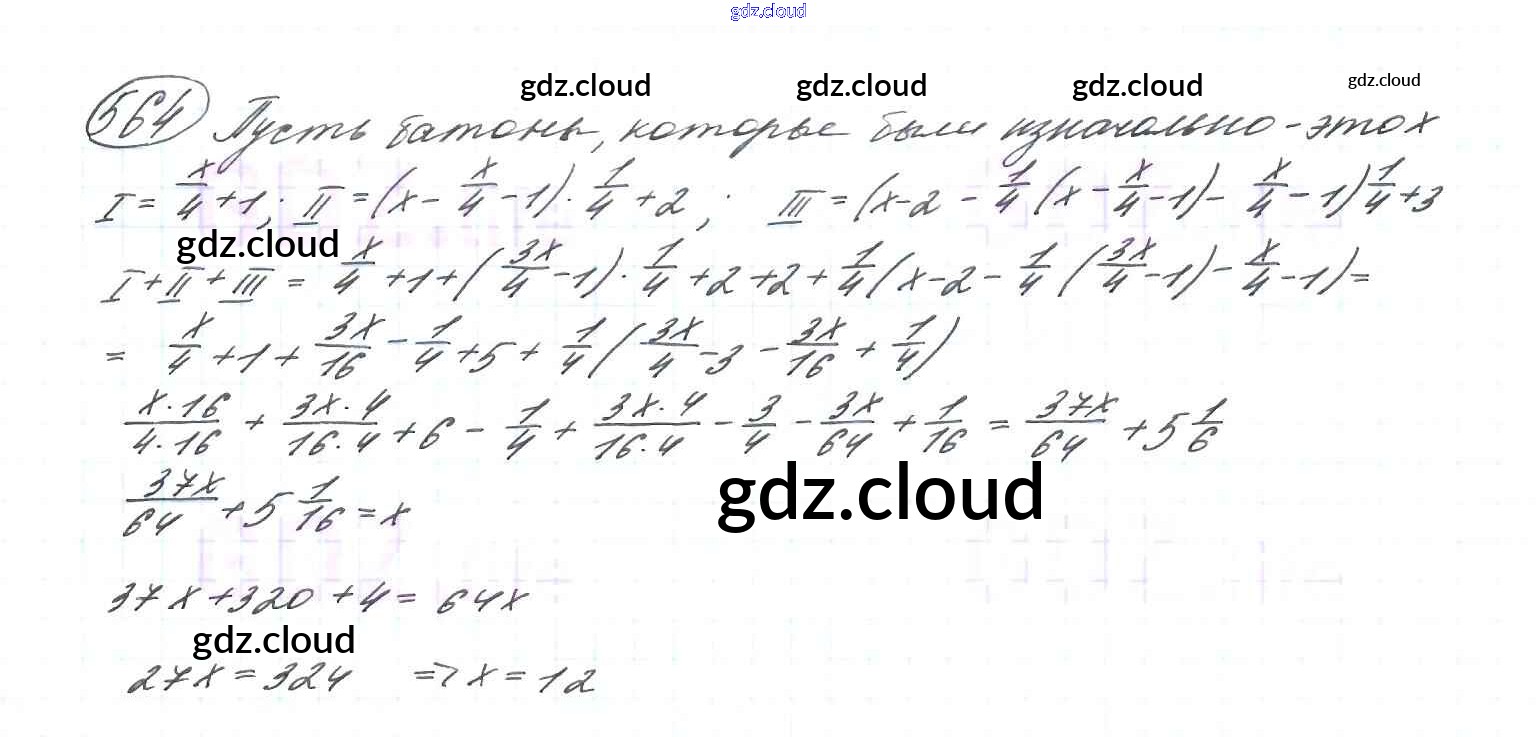 gdz.cloud
gdz.cloud gdz.cloud gdz.cloud gdz.cloud
564 Пусть батоны, которые были изначально - это x
I = x/4 + 1; II = (x - x/4 - 1) · 1/4 + 2; III = (x - 2 - 1/4 (x - x/4 - 1) - x/4 - 1) 1/4 + 3
gdz.cloud
I + II + III = x/4 + 1 + (3x/4 - 1) · 1/4 + 2 + 2 + 1/4 (x - 2 - 1/4 (3x/4 - 1) - x/4 - 1) =
= x/4 + 1 + 3x/16 - 1/4 + 5 + 1/4 (3x/4 - 3 - 3x/16 + 1/4)
x·16/4·16 + 3x·4/16·4 + 6 - 1/4 + 3x·4/16·4 - 3/4 - 3x/64 + 1/16 = 37x/64 + 5 1/6
37x/64 + 5 1/16 = x
gdz.cloud
37x + 320 + 4 = 64x
gdz.cloud
27x = 324 => x = 12